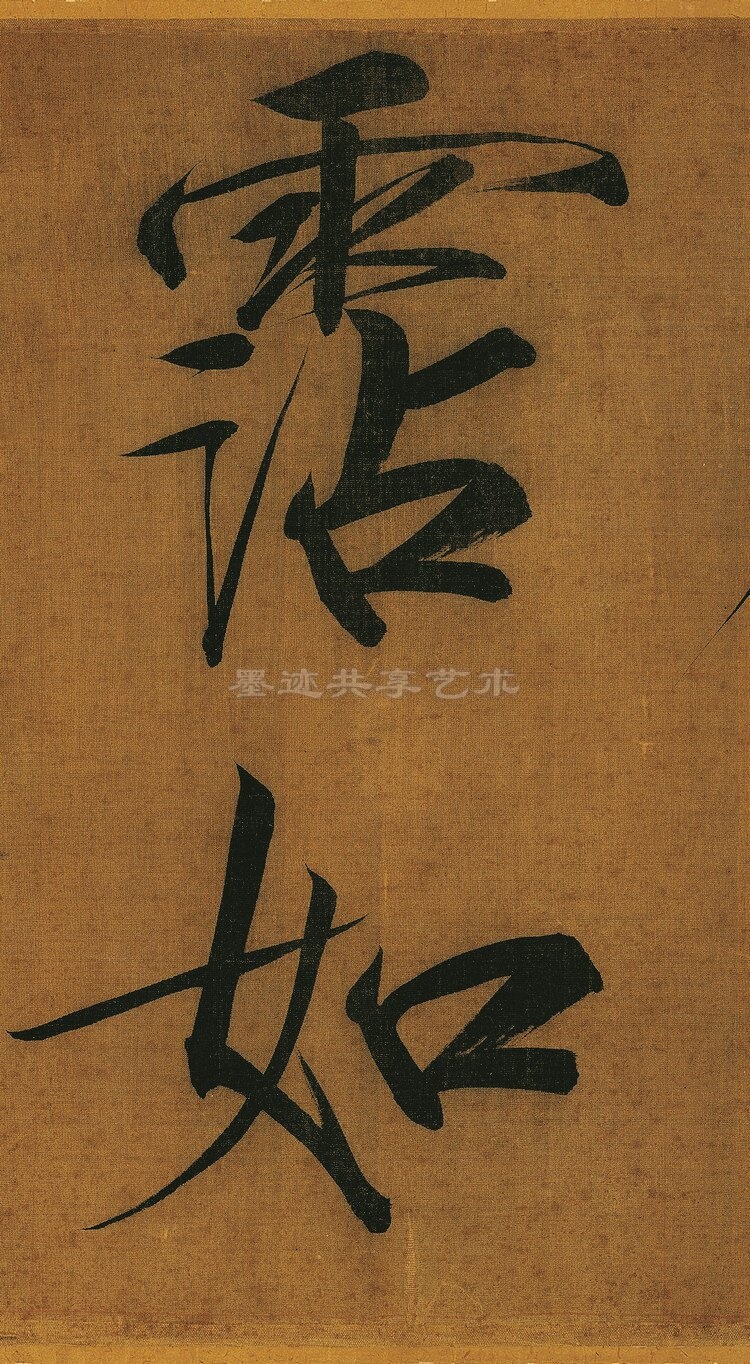 霑如
墨迹共享艺术